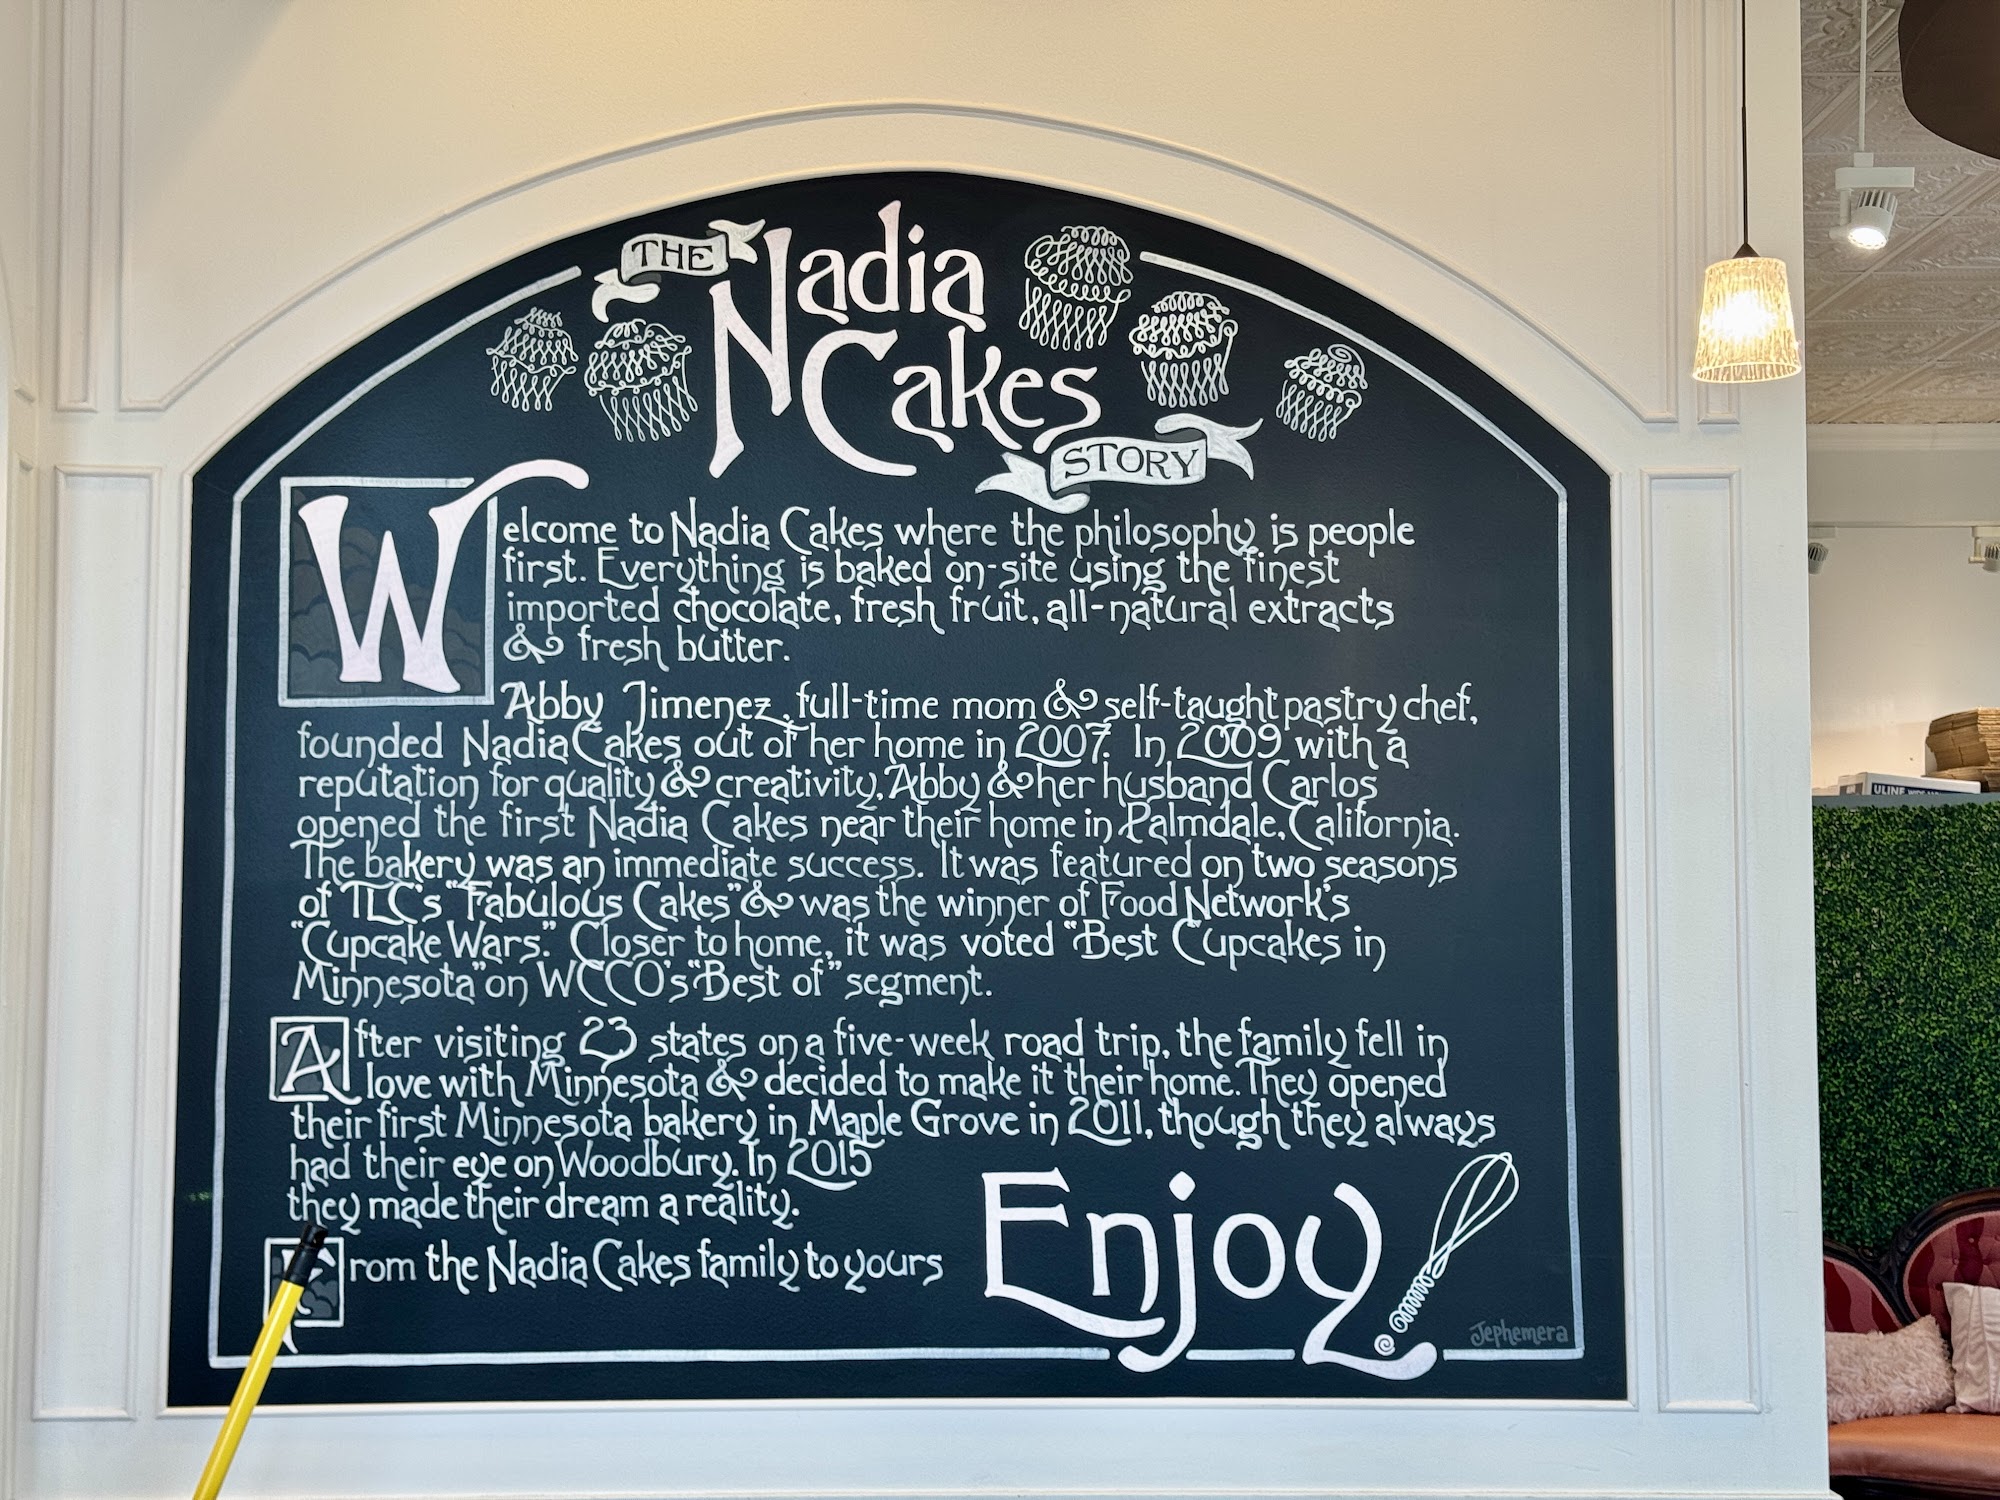 THE
Nadia
Cakes
STORY
Welcome to Nadia Cakes where the philosophy is people
first. Everything is baked on-site using the finest
imported chocolate, fresh fruit, all-natural extracts
& fresh butter.
Abby Jimenez, full-time mom & self-taught pastry chef,
founded Nadia Cakes out of her home in 2007. In 2009 with a
reputation for quality & creativity, Abby & her husband Carlos
opened the first Nadia Cakes near their home in Palmdale, California.
The bakery was an immediate success. It was featured on two seasons
of TLC's "Fabulous Cakes" & was the winner of Food Network's
"Cupcake Wars." Closer to home, it was voted "Best Cupcakes in
Minnesota" on WCCO's "Best of" segment.
After visiting 23 states on a five-week road trip, the family fell in
love with Minnesota & decided to make it their home. They opened
their first Minnesota bakery in Maple Grove in 2011, though they always
had their eye on Woodbury. In 2015
they made their dream a reality.
From the Nadia Cakes family to yours
Enjoy
Jephemera
ULINE